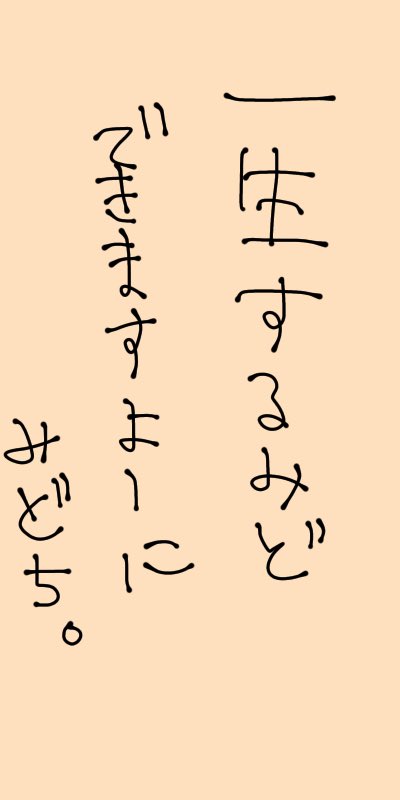 一生するみど
できますよーに
みどち。